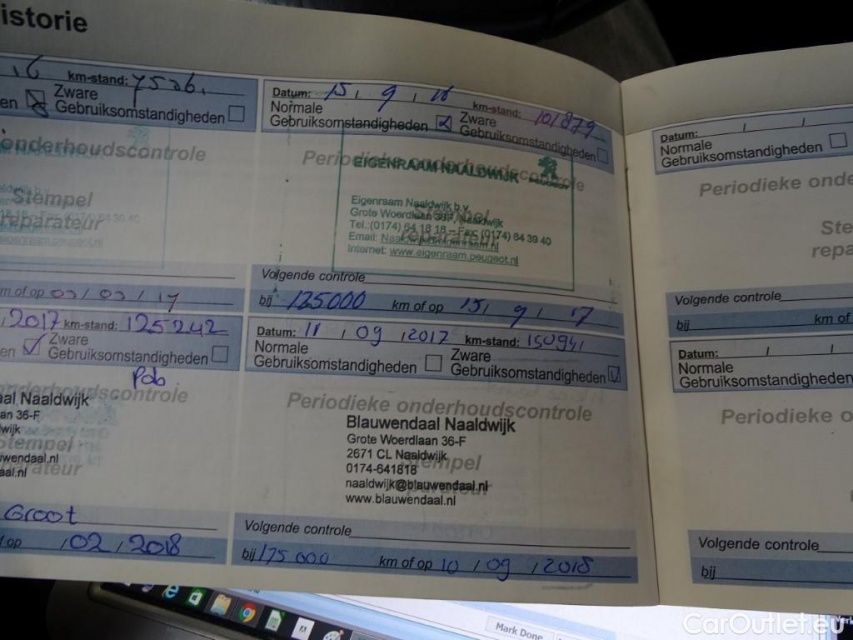 istorie
km-stand:
en Zware
Gebruiksomstandigheden
onderhoudscontrole
Stempel
reparateur
m of op 03/03/17
Datum: 15, 9, 16 km-stand: 101879
Normale Zware
Gebruiksomstandigheden Gebruiksomstandigheden
Periodieke onderhoudscontrole
EIGENRAAM NAALDWIJK
Eigenraam Naaldwijk b.v.
Grote Woerdlaan
Tel.:(0174) 64 18 18 – Fax: (0174) 64 39 40
Email:
Internet: www.eigenraam.peugeot.nl
Stempel
reparateur
Volgende controle
bij 125000 km of op 15, 9, 17
2017 km-stand: 125242
en Zware
Gebruiksomstandigheden
onderhoudscontrole
aal Naaldwijk
an 36-F
wijk
Stempel
wendaal.nl
reparateur
aal.nl
Groot
op /02/2018
Datum: 11/09/2017 km-stand: 150941
Normale Zware
Gebruiksomstandigheden Gebruiksomstandigheden
Periodieke onderhoudscontrole
Blauwendaal Naaldwijk
Grote Woerdlaan 36-F
2671 CL Naaldwijk
0174-641818
Stempel
naaldwijk@blauwendaal.nl
www.blauwendaal.nl
Volgende controle
bij 175 000 km of op 10/09/2018
Datum: / /
Normale
Gebruiksomstandigheden
Periodieke onde
Ste
repa
Volgende controle
bij km of
Datum: / /
Normale
Gebruiksomstandigheden
Periodieke o
Volgende controle
bij
Mark Done
CarOutlet.eu